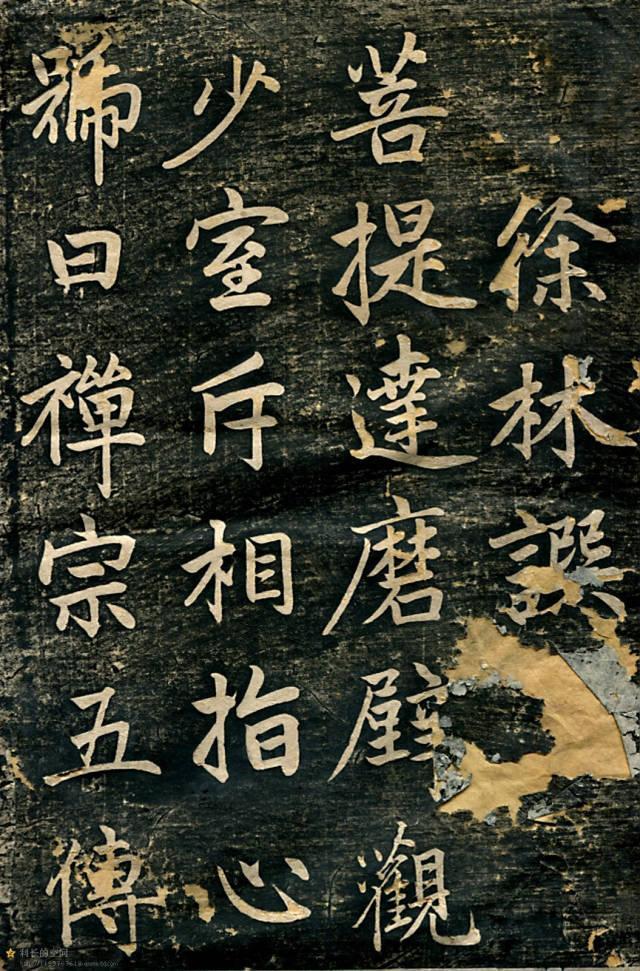 徐林譔
菩提達磨壁觀
少室斥相指心
號曰禪宗五傳
利长的空间